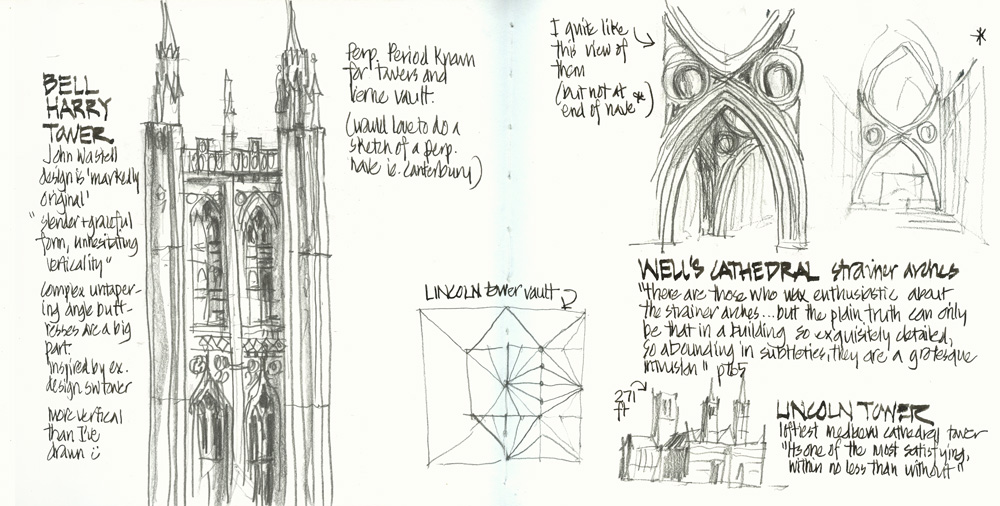 BELL
HARRY
TOWER
John Wastell
design is 'markedly
original'
"slender + graceful
form, unhesitating
verticality"
Complex untaper-
ing angle butt-
resses are a big
part.
Inspired by ex.
design SW tower
More vertical
than I've
drawn
Perp. Period known
for towers and
lierne vault.
(would love to do a
sketch of a perp.
nave ie. Canterbury)
LINCOLN tower vault
I quite like
this view of
them
(but not at
end of nave*)
*
WELL'S CATHEDRAL strainer arches
"there are those who wax enthusiastic about
the strainer arches...but the plain truth can only
be that in a building so exquisitely detailed,
so abounding in subtleties, they are a grotesque
intrusion" p165
271
ft
LINCOLN TOWER
loftiest medieval cathedral tower
"Its one of the most satisfying,
within no less than without"